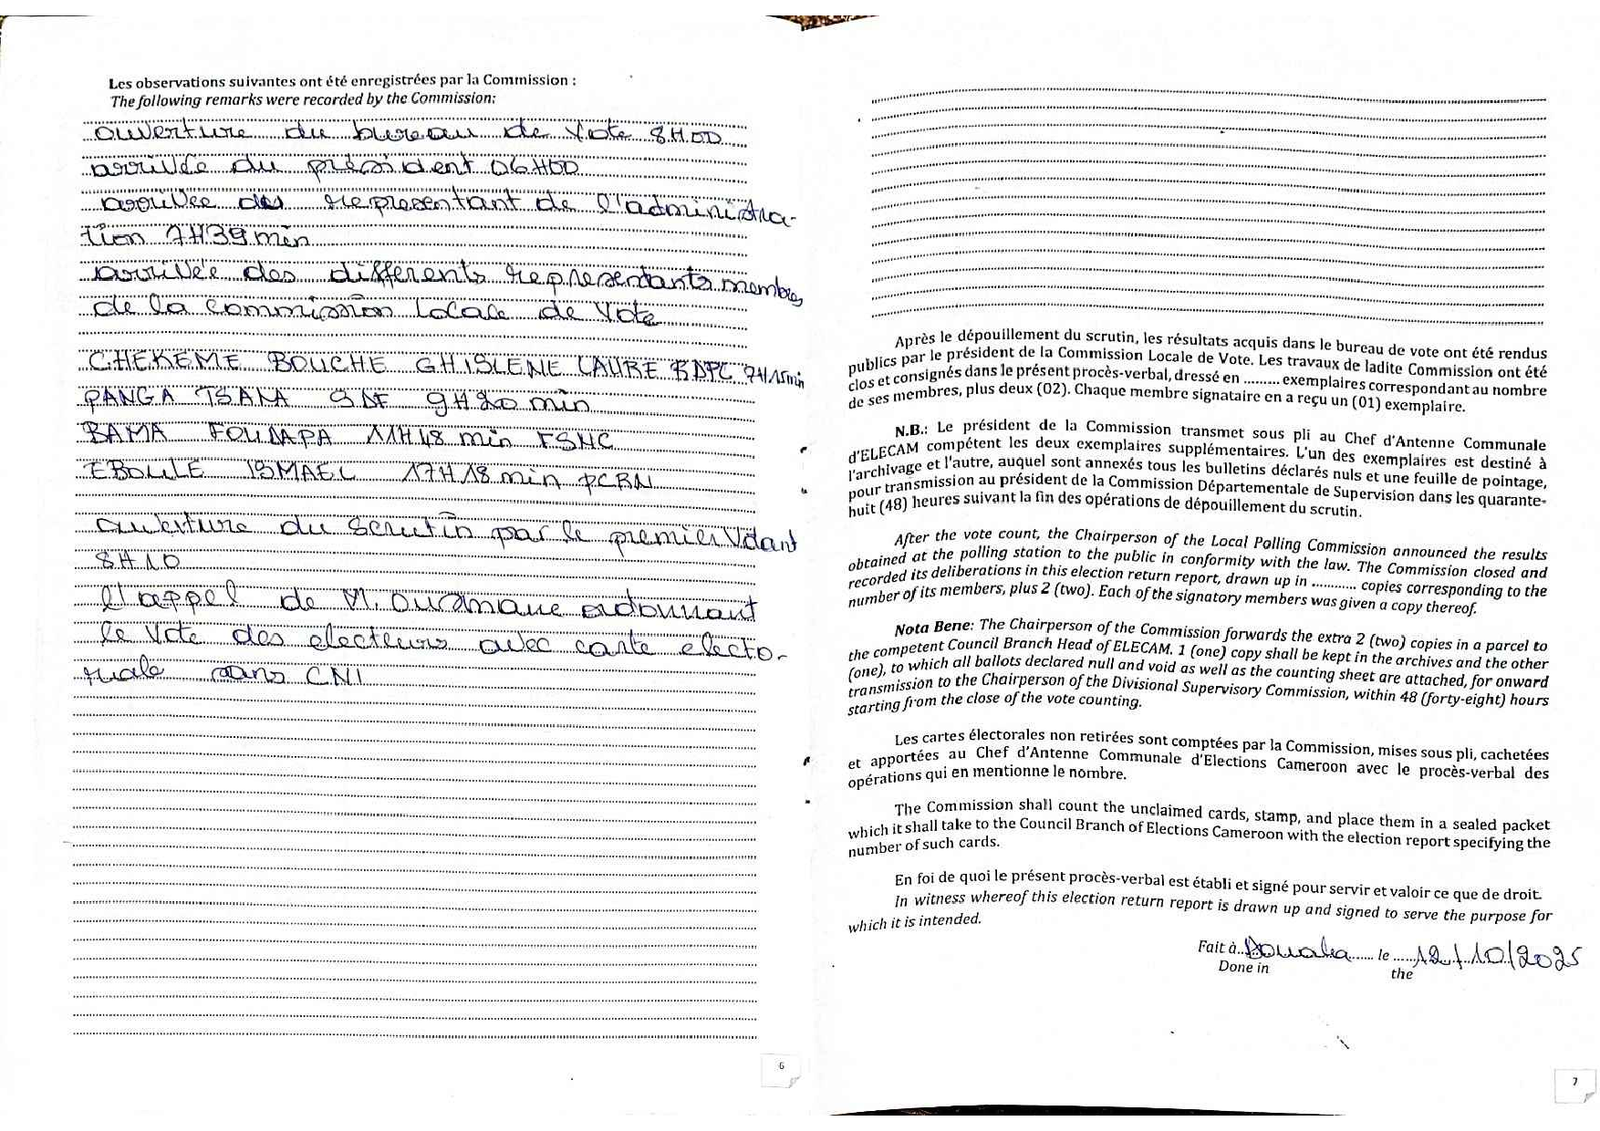 Les observations suivantes ont été enregistrées par la Commission :
The following remarks were recorded by the Commission:
ouverture du bureau de vote 8H00
arrivée du président 06H00
arrivée des representant de l'administra-
tion 7H39min
arrivée des differents representants membres
de la commission locale de vote
CHEKEME BOUCHE GHISLENE LAURE RDPC 7H15min
PANGA TSANA SDF 9H20 min
BAMA FOUDAPA 11H48 min FSNC
EBOULE ISMAEL 17H18min PCRN
ouverture du scrutin par le premier votant
8H10
l'appel de M. Ousmane ordonnant
le vote des electeurs avec carte electo-
rale sans CNI
6
Après le dépouillement du scrutin, les résultats acquis dans le bureau de vote ont été rendus
publics par le président de la Commission Locale de Vote. Les travaux de ladite Commission ont été
clos et consignés dans le présent procès-verbal, dressé en ......... exemplaires correspondant au nombre
de ses membres, plus deux (02). Chaque membre signataire en a reçu un (01) exemplaire.
N.B.: Le président de la Commission transmet sous pli au Chef d'Antenne Communale
d'ELECAM compétent les deux exemplaires supplémentaires. L'un des exemplaires est destiné à
l'archivage et l'autre, auquel sont annexés tous les bulletins déclarés nuls et une feuille de pointage,
pour transmission au président de la Commission Départementale de Supervision dans les quarante-
huit (48) heures suivant la fin des opérations de dépouillement du scrutin.
After the vote count, the Chairperson of the Local Polling Commission announced the results
obtained at the polling station to the public in conformity with the law. The Commission closed and
recorded its deliberations in this election return report, drawn up in ........... copies corresponding to the
number of its members, plus 2 (two). Each of the signatory members was given a copy thereof.
Nota Bene: The Chairperson of the Commission forwards the extra 2 (two) copies in a parcel to
the competent Council Branch Head of ELECAM. 1 (one) copy shall be kept in the archives and the other
(one), to which all ballots declared null and void as well as the counting sheet are attached, for onward
transmission to the Chairperson of the Divisional Supervisory Commission, within 48 (forty-eight) hours
starting from the close of the vote counting.
Les cartes électorales non retirées sont comptées par la Commission, mises sous pli, cachetées
et apportées au Chef d'Antenne Communale d'Elections Cameroon avec le procès-verbal des
opérations qui en mentionne le nombre.
The Commission shall count the unclaimed cards, stamp, and place them in a sealed packet
which it shall take to the Council Branch of Elections Cameroon with the election report specifying the
number of such cards.
En foi de quoi le présent procès-verbal est établi et signé pour servir et valoir ce que de droit.
In witness whereof this election return report is drawn up and signed to serve the purpose for
which it is intended.
Fait à Douala le 12/10/2025
Done in the
7